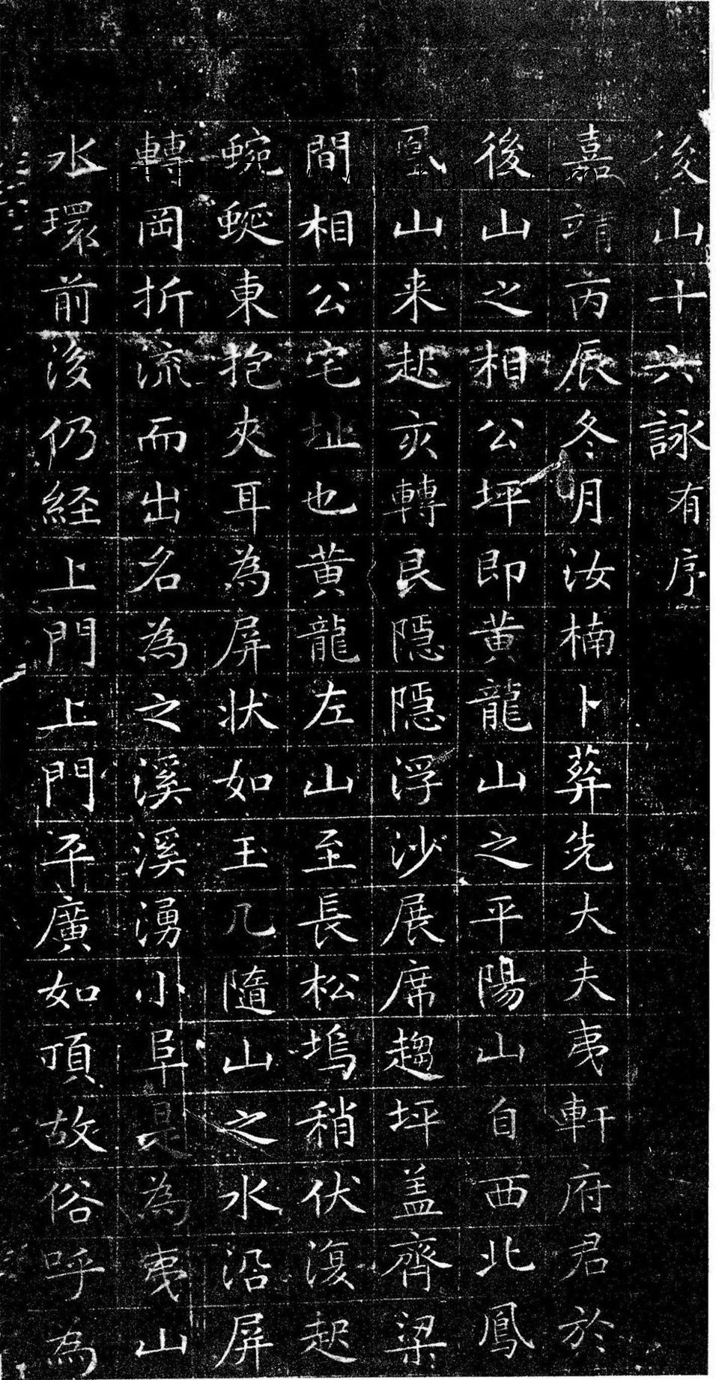 後山十六詠有序
嘉靖丙辰冬月汝楠卜葬先大夫夷軒府君於
後山之相公坪即黄龍山之平陽山自西北鳳
凰山来起亥轉艮隱隱浮沙展席趨坪盖齊梁
間相公宅址也黄龍左山至長松塢稍伏復起
蜿蜒東抱夾耳為屏状如玉几隨山之水沿屏
轉岡折流而出名為之溪溪湧小阜是為夷山
水環前後仍経上門上門平廣如項故俗呼為